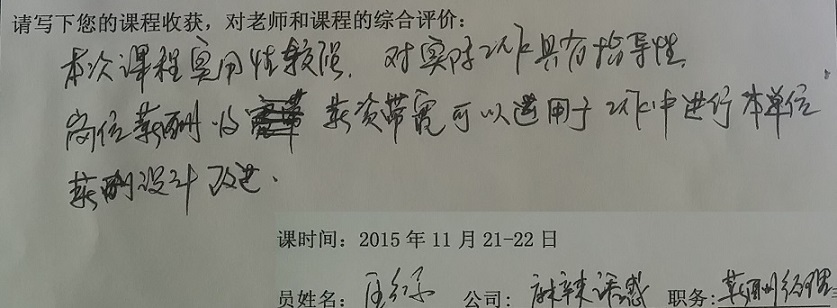 请写下您的课程收获，对老师和课程的综合评价：
本次课程实用性较强，对实际工作具有指导性，
岗位薪酬及 薪资带宽可以适用于工作中进行本单位
薪酬设计改进.
课时间：2015年11月21-22日
员姓名： 公司：麻辣诱惑 职务：薪酬经理